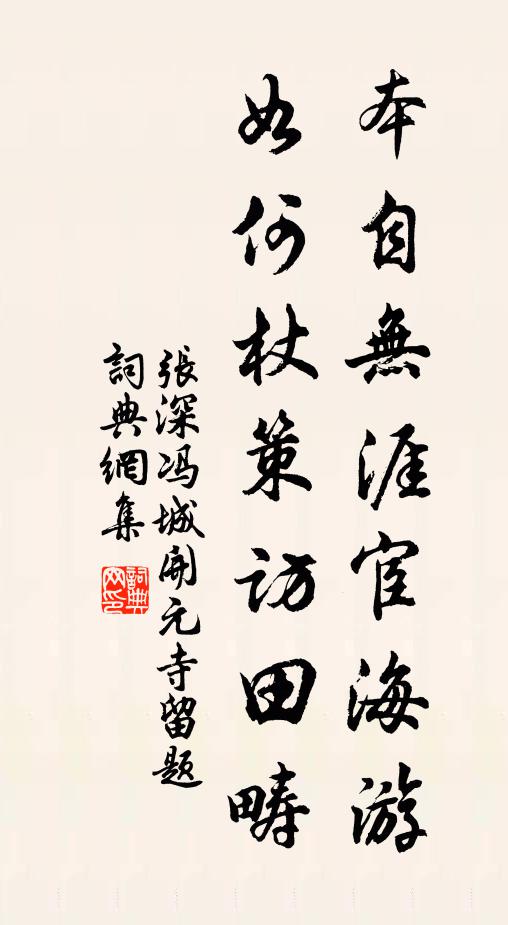 本自無涯宦海游
如何杖策訪田疇
張深馮城開元寺留題
詞典網集
詞典
网印